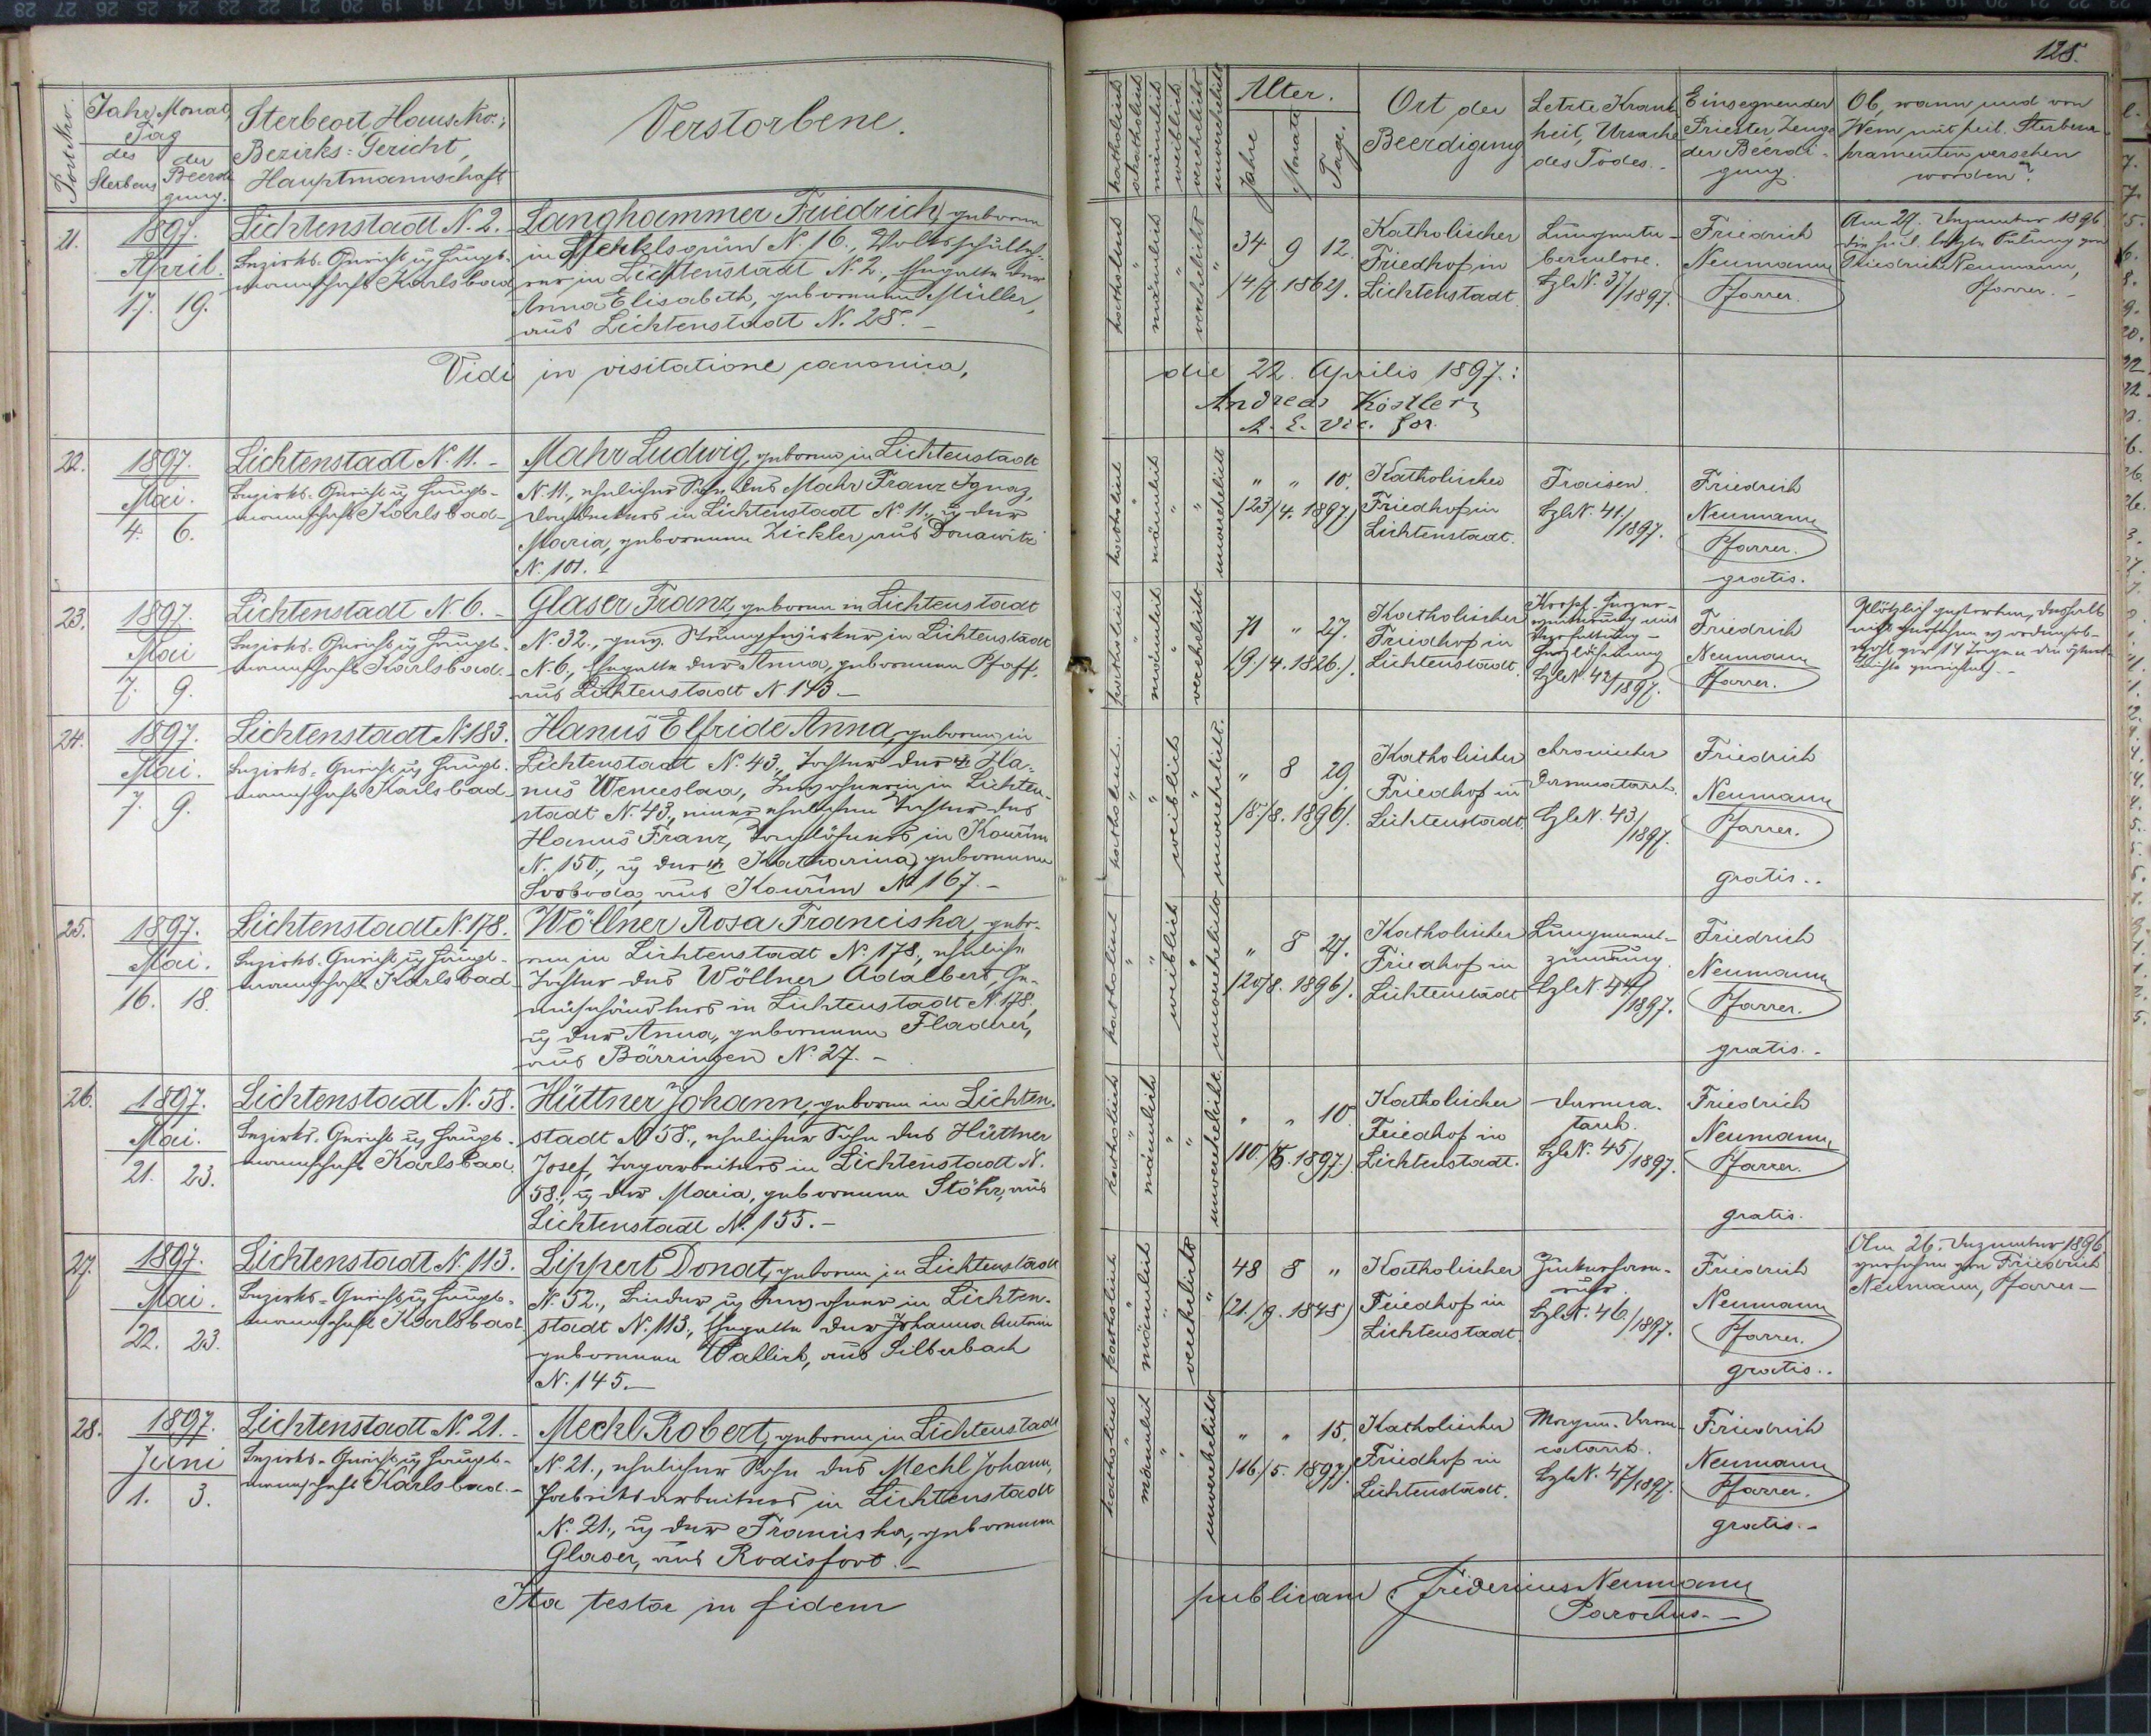 128.
Post Nro.
Jahr, Monat,
Tag
des
Sterbens
der
Beerdi-
gung.
Sterbeort, Haus Nro.;
Bezirks-Gericht,
Hauptmannschaft
Verstorbene.
katholisch
akatholisch
männlich
weiblich
verehelicht
unverehelicht
Alter.
Jahre
Monate
Tage.
Ort der
Beerdigung
Letzte Krank-
heit, Ursache
des Todes.
Einsegnender
Priester, Zeuge
der Beerdi-
gung.
Ob, wann, und von
Wem mit heil. Sterbesa-
kramenten versehen
worden?
21.
1897.
April.
17. 19.
Lichtenstadt N. 2.
Bezirks-Gericht u Haupt-
mannschaft Karlsbad
Langhammer Friedrich, geboren
in N. 16., Volksschulleh-
rer in Lichtenstadt N. 2., Ehegatte der
Anna Elisabeth, geborenen Müller,
aus Lichtenstadt N. 28. –
katholisch
männlich
verehelicht
34. 9 12.
14/7. 1862).
Katholischer
Friedhof in
Lichtenstadt
Lungentu-
berculose.
BzlN. 37/1897.
Friedrich
Neumann
Pfarrer.
Am 29. Dezember 1896
die heil. letzte Ölung von
Friedrich Neumann,
Pfarrer. –
Vidi in visitatione canonica,
die 22. Aprilis 1897.:
Andreas Köstler
A. E. Vic. for.
22.
1897.
Mai.
4. 6.
Lichtenstadt N. 11. –
Bezirks-Gericht u Haupt-
mannschaft Karlsbad
Mahr Ludwig, geboren in Lichtenstadt
N. 11., ehelicher Sohn des Mahr Franz Ignaz,
Dachdeckers in Lichtenstadt N. 11., u der
Maria, geborenen Zickler aus Donawitz
N. 101. –
katholisch
männlich
unverehelicht
" " 10.
(23/4. 1897)
Katholischer
Friedhof in
Lichtenstadt.
Fraisen.
BzlN. 41./1897.
Friedrich
Neumann
Pfarrer.
gratis.
23.
1897.
Mai
7. 9.
Lichtenstadt N. 6. –
Bezirks-Gericht u Haupt-
mannschaft Karlsbad.
Glaser Franz, geboren in Lichtenstadt
N. 32., gew. Strumpfwirker in Lichtenstadt
N. 6., Ehegatte der Anna, geborenen Pfaff.
aus Lichtenstadt N 143 –
katholisch
männlich
verehelicht
71 " 27.
(9./4. 1826.)
Katholischer
Friedhof in
Lichtenstadt.
BzlN. 42/1897.
Friedrich
Neumann
Pfarrer.
Plötzlich gestorben, deshalb
nicht versehen worden, ob-
wohl vor 14 Tagen die öster-
liche
24.
1897.
Mai.
7. 9.
Lichtenstadt N 183.
Bezirks-Gericht u Haupt-
mannschaft Karlsbad
Hanuš Elfride Anna, geboren in
Lichtenstadt N. 43., Tochter der Ha-
nuš Wenceslaa, Inwohnerin in Lichten-
stadt N. 43., einer ehelichen Tochter des
Hanuš Franz, Taglöhners in Kouřim
N. 150., u der Katharina, geborenen
Svoboda, aus Kouřim N. 167. –
katholisch
weiblich
unverehelicht.
" 8 29.
(8./8. 1896).
Katholischer
Friedhof in
Lichtenstadt.
chronischer
Darmcatarrh.
BzlN. 43/1897.
Friedrich
Neumann
Pfarrer.
gratis..
25.
1897.
Mai.
16. 18.
Lichtenstadt N. 178.
Bezirks-Gericht u Haupt-
mannschaft Karlsbad
Wöllner Rosa Franciska, gebo-
ren in Lichtenstadt N. 178., eheliche
Tochter des Wöllner Adalbert, Ge-
müsehändlers in Lichtenstadt N. 178.,
u der Anna, geborenen Fladerer,
aus Bärringen N. 27. –
katholisch
weiblich
unverehelicht
" 8 27.
(20/8. 1896).
Katholischer
Friedhof in
Lichtenstadt
Lungenent-
zündung.
BzlN. 44/1897.
Friedrich
Neumann
Pfarrer.
gratis. –
26.
1897.
Mai.
21. 23.
Lichtenstadt N. 58.
Bezirks-Gericht u Haupt-
mannschaft Karlsbad.
Hüttner Johann, geboren in Lichten-
stadt N 58., ehelicher Sohn des Hüttner
Josef, Tagarbeiters in Lichtenstadt N.
58., u der Maria, geborenen Stöhr, aus
Lichtenstadt N. 155. –
katholisch
männlich
unverehelicht.
" " 10.
(10./5. 1897.)
Katholischer
Friedhof in
Lichtenstadt.
Darmca-
tarrh.
BzlN. 45/1897.
Friedrich
Neumann
Pfarrer.
gratis.
27.
1897.
Mai.
22. 23.
Lichtenstadt N. 113.
Bezirks-Gericht u Haupt-
mannschaft Karlsbad
Lippert Donat, geboren in Lichtenstadt
N. 52., Binder u Inwohner in Lichten-
stadt N. 113., Ehegatte der Johanna Antonia
geborenen Wallich, aus Silberbach
N. 145. –
katholisch
männlich
verehelicht
48 8 "
(21./9. 1848)
Katholischer
Friedhof in
Lichtenstadt
Zuckerharn-
ruhr.
BzlN. 46./1897.
Friedrich
Neumann
Pfarrer.
gratis..
Am 26. Dezember 1896.
versehen von Friedrich
Neumann, Pfarrer –
28.
1897.
Juni
1. 3.
Lichtenstadt N. 21. –
Bezirks-Gericht u Haupt-
mannschaft Karlsbad. –
Mechl Robert, geboren in Lichtenstadt
N. 21., ehelicher Sohn des Mechl Johann,
Fabriksarbeiters in Lichtenstadt
N. 21., u der Franciska, geborenen
Glaser, aus Rodisfort. –
katholisch
männlich
unverehelicht
" " 15.
(16./5. 1897)
Katholischer
Friedhof in
Lichtenstadt.
Magen-Darm-
catarrh.
BzlN. 47/1897.
Friedrich
Neumann
Pfarrer.
gratis. –
Ita testor in fidem
publicam: Fridericus Neumann
Parochus. –